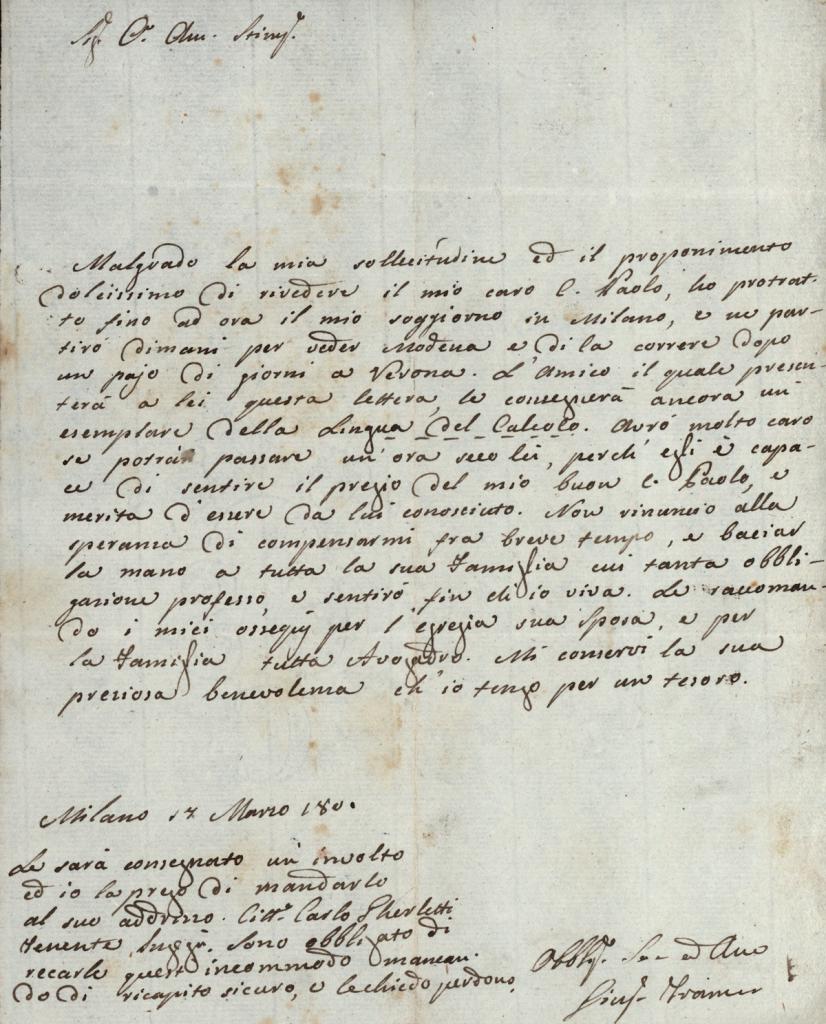 Sig. C. Am. Stim 
Malgrado la mia sollecitudine ed il proponimento
dolcissimo di rivedere il mio caro C. Paolo, ho protrat-
to fino ad ora il mio soggiorno in Milano, e ne par-
tirò dimani per veder Modena e di la correre dopo
un pajo di giorni a Verona. L'Amico il quale presen-
terà a lei questa lettera, le consegnerà ancora un
esemplare della Lingua del Calcolo. Avrò molto caro
se potrà passare un'ora seco lei, perchè egli è capa-
ce di sentire il pregio del mio buon C. Paolo, e
merita d'essere da lui conosciuto. Non rinuncio alla
speranza di compensarmi fra breve tempo, e baciar
la mano a tutta la sua Famiglia cui tanta obbli-
gazione professo, e sentirò fin ch'io viva. Le raccoman-
do i miei ossequj per l'egregia sua Sposa, e per
la Famiglia tutta Avogadro. Mi conservi la sua
preziosa benevolenza ch'io tengo per un tesoro.
Milano 17 Marzo 180
Le sarà consegnato un involto
ed io la prego di mandarlo
al suo addrizzo. Citt. Carlo Gherletti
Tenente Sono obbligato di
recarle quest'incommodo mancan-
do di ricapito sicuro, e le chiedo perdono
Obblg. Se- ed Am
Gius.